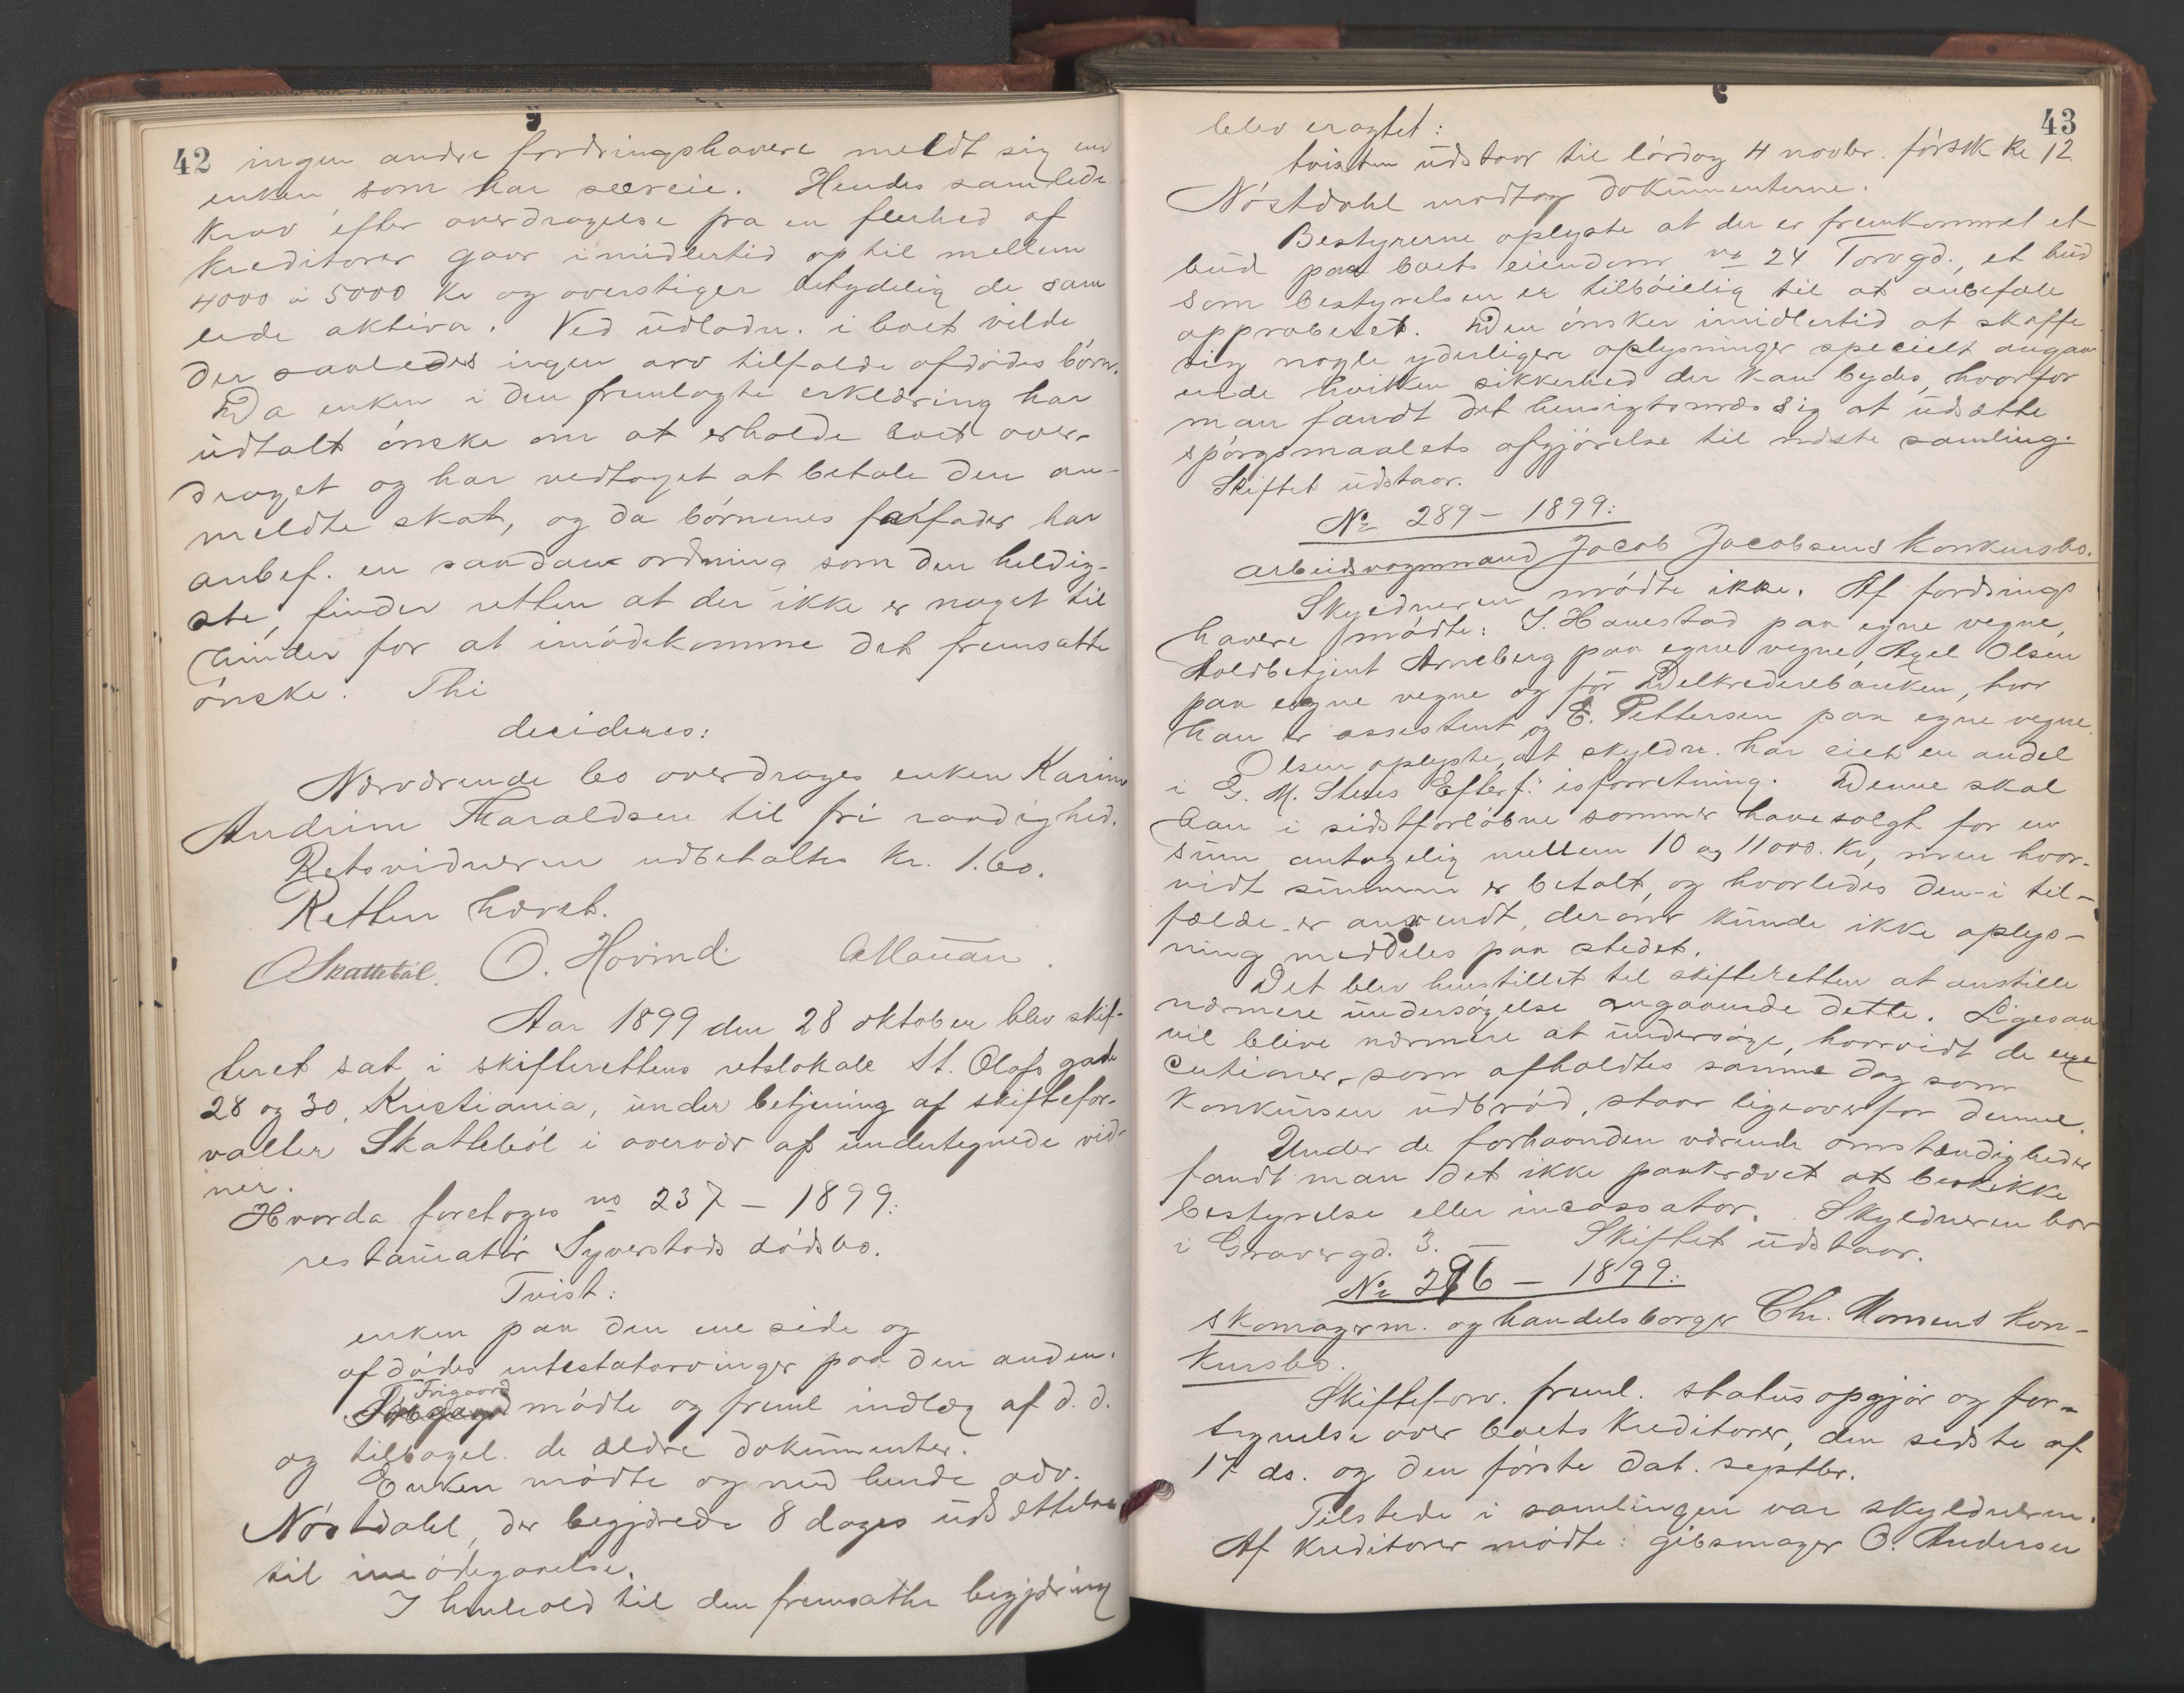 42
ingen andre fordringshavere meldt sig end
enken som har særeie. Hendes samlede
krav efter overdragelse fra en flerhed af
kreditorer gaar imidlertid op til mellem
4000 à 5000 kr og overstiger betydelig de sam
lede aktiva. Ved udlodn. i boet vilde
der saaledes ingen arv tilfalde afdødes børn.
Da enken i den fremlagte erklæring har
udtalt ønske om at erholde boet over-
draget og har vedtaget at betale den an-
meldte skat, og da børnenes farfader har
anbef. en saadan ordning som den heldig-
ste, finder retten at der ikke er noget til
hinder for at imødekomme det fremsatte
ønske. Thi
decideres:
Nærværende bo overdrages enken Karine
Andrine Haraldsen til fri raadighed.
Retsvidnerne udbetaltes kr. 1.60.
Retten hævet.
Skattebøl. O. Hovind
Aar 1899 den 28 oktober blev skif-
teret sat i skifterettens retslokale St. Olafs gade
28 og 30, Kristiania, under betjening af skiftefor-
valter Skattebøl i overvær af undertegnede vid-
ner.
Hvorda foretoges no 237 – 1899:
restauratør Syverstads dødsbo.
Tvist:
enken paa den ene side og
afdødes intestatarvinger paa den anden.
Frigaard
mødte og freml indlæg af d. d.
og tilbagel. de ældre dokumenter.
Enken mødte og med hende adv.
Nøstdahl, der begjærede 8 dages udsættelse
til imødegaaelse.
I henhold til den fremsatte begjæring
43
blev eragtet:
tvisten udstaar til lørdag 4 novbr. førstk kl 12
Nøstdahl modtog dokumenterne.
Bestyrerne oplyste at der er fremkommet et
bud paa boets eiendom no 24 Torvgd., et bud
som bestyrelsen er tilbøielig til at anbefale
approberet. Den ønsker imidlertid at skaffe
sig nogle yderligere oplysninger specielt angaa
ende hvilken sikkerhed der kan bydes, hvorfor
man fandt det hensigtsmæssig at udsætte
spørgsmaalets afgjørelse til næste samling.
Skiftet udstaar.
No 289 – 1899:
arbeidsvognmand Jacob Jacobsens konkursbo.
Skyldneren mødte ikke. Af fordrings
havere mødte: J. Hanestad paa egne vegne,
Toldbetjent Arneberg paa egne vegne, Axel Olsen
paa egne vegne og for Delkrederebanken, hvor
han er assistent, og E. Pettersen paa egne vegne.
Olsen oplyste, at skyldn. har eiet en andel
i G. M. Efterf: isforretning. Denne skal
han i sidstforløbne sommer have solgt for en
sum antagelig mellem 10 og 11000. kr, men hvor-
vidt summen er betalt, og hvorledes den – i til-
fælde – er anvendt, derom kunde ikke oplys-
ning meddeles paa stedet.
Det blev henstillet til skifteretten at anstille
nærmere undersøgelse angaaende dette. Ligesaa
vil blive nærmere at undersøge, hvorvidt de exe
cutioner, som afholdtes samme dag som
konkursen udbrød, staar ligeoverfor denne.
Under de forhaanden værende omstændigheder
fandt man det ikke paakrævet at beskikke
bestyrelse eller incassator. Skyldneren bor
i Gravergd. 3. – Skiftet udstaar.
No 296 – 1899:
skomagerm. og handelsborger Chr. Momens kon-
kursbo.
Skifteforv. freml. status opgjør og for-
tegnelse over boets kreditorer, den sidste af
17 ds. og den første dat. septbr.
Tilstede i samlingen var skyldneren.
Af kreditorer mødte: gibsmager O. Andersen